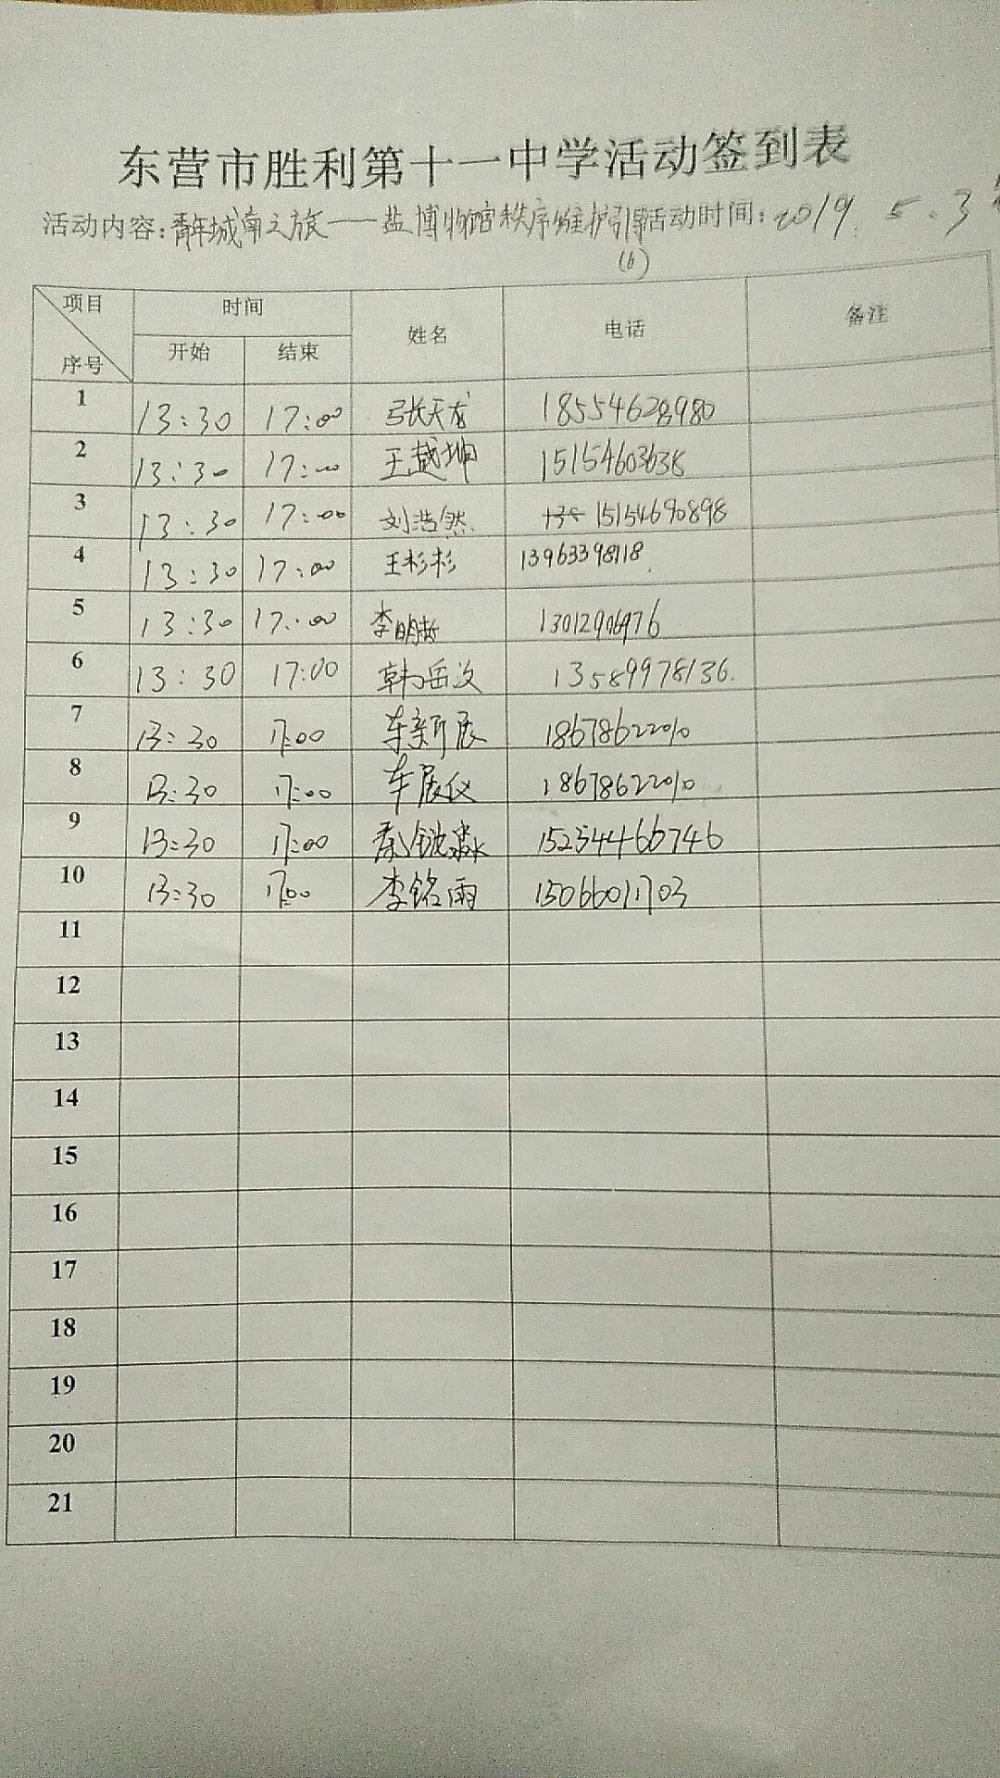 东营市胜利第十一中学活动签到表
活动内容:青年城南之旅——盐博物馆秩序维护引导活动时间:2019. 5. 3
(6)
项目 时间 姓名 电话 备注
序号 开始 结束
1 13:30 17:00 张天龙 18554628980
2 13:30 17:00 王越坤 15154603635
3 13:30 17:00 刘浩然 15154690898
4 13:30 17:00 王杉杉 13963398118
5 13:30 17:00 李明哲 13012906976
6 13:30 17:00 韩岳汝 13589978136
7 13:30 17:00 车新展 18678622010
8 13:30 17:00 车展仪 18678622010
9 13:30 17:00 秦 15254466746
10 13:30 17:00 李铭雨 15066011703
11
12
13
14
15
16
17
18
19
20
21